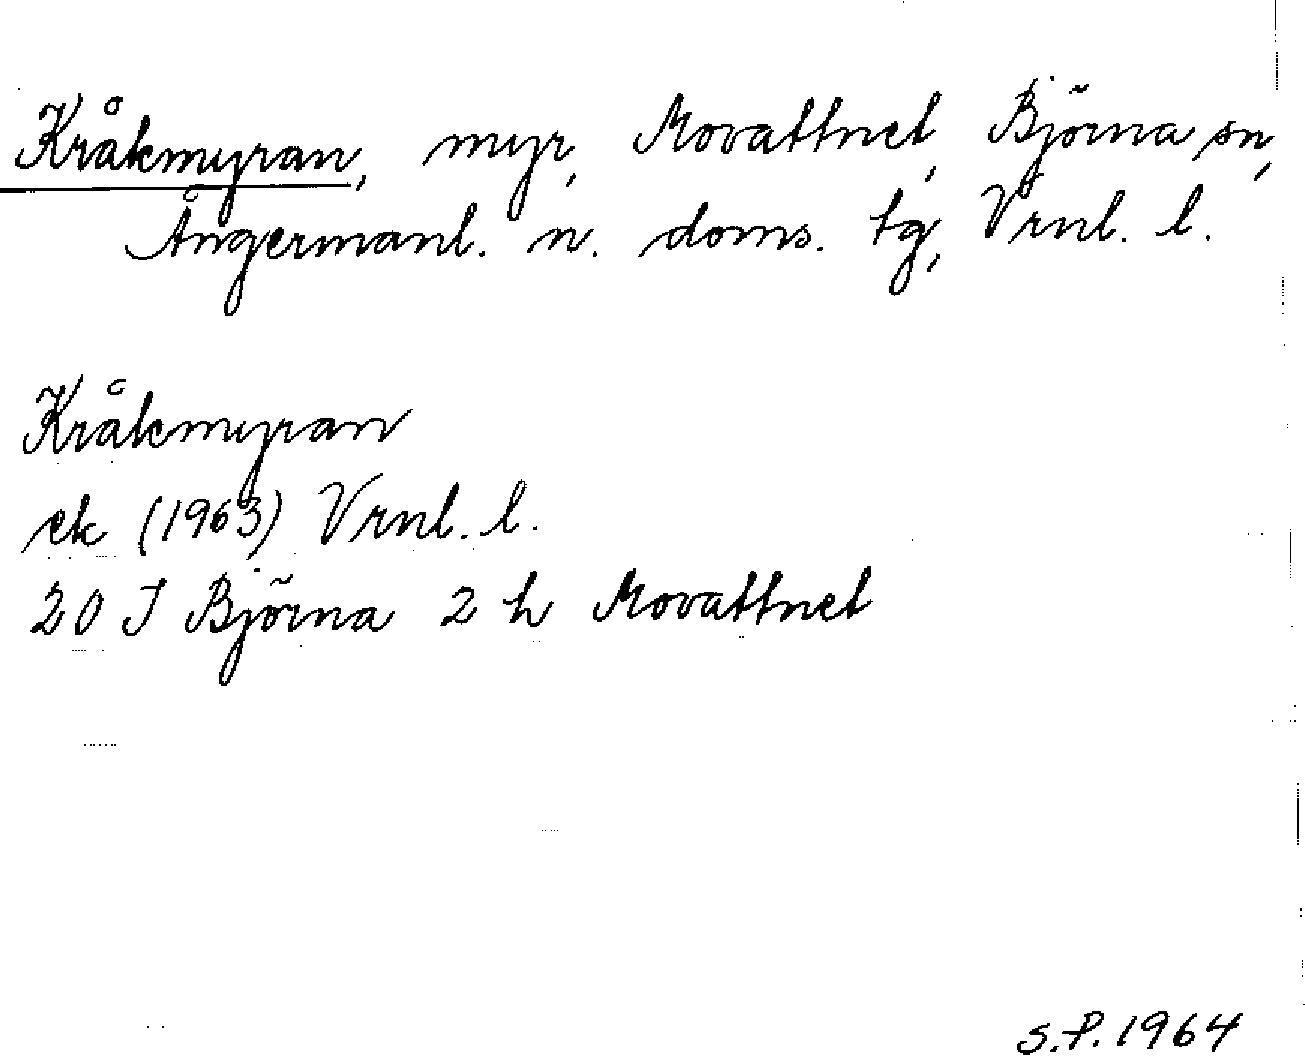 Kråkmyran, myr, Movattnet, Björna sn,
Ångermanl. n. doms. tg, Vrnl. l.
Kråkmyran
ek (1963) Vrnl. l.
20 I Björna 2 h Movattnet
S.P. 1964